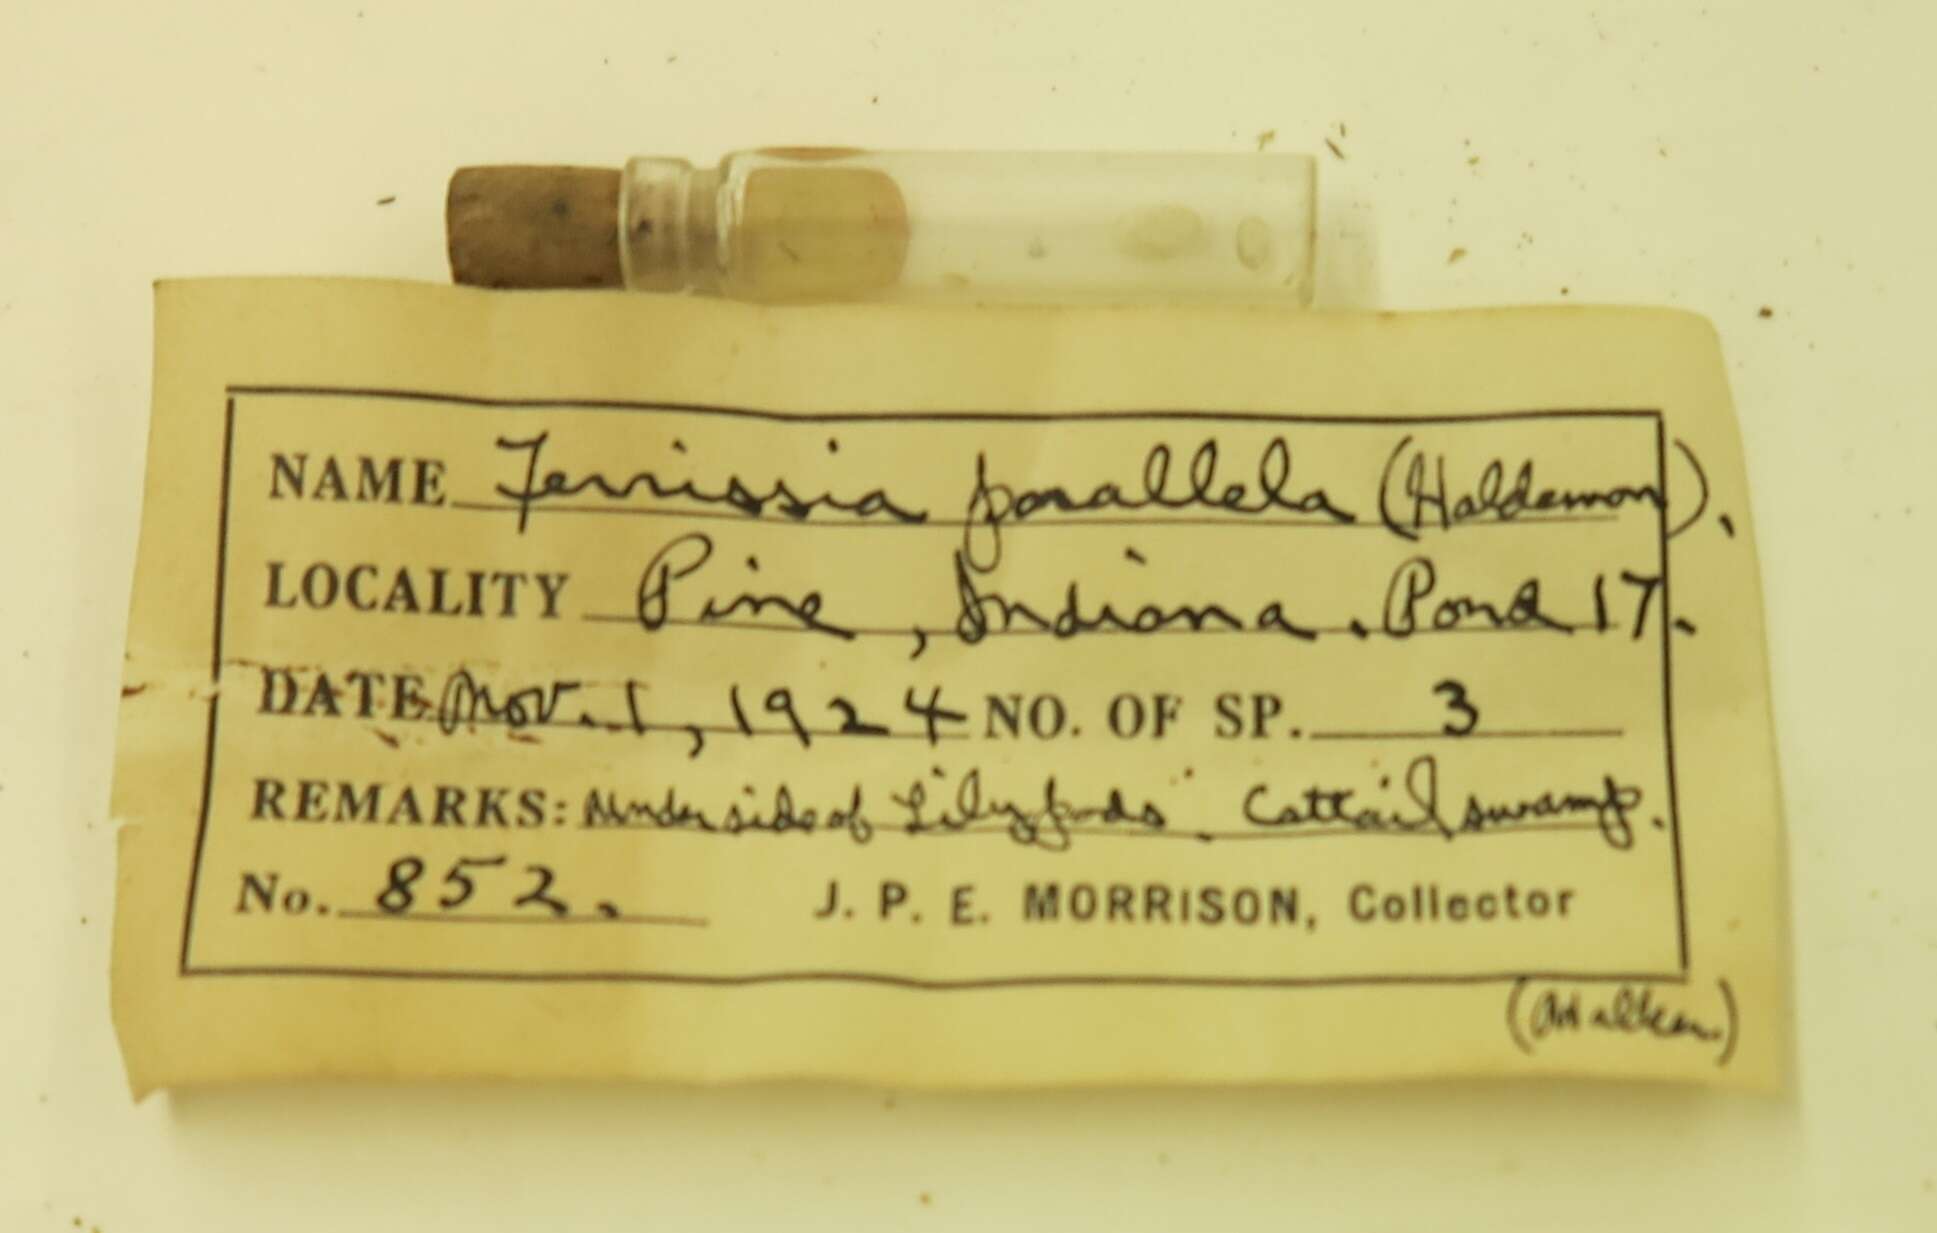 NAME Ferrissia parallela (Haldeman).
LOCALITY Pine, Indiana. Pond 17.
DATE Nov. 1, 1924 NO. OF SP. 3
REMARKS: Underside of Lily pads. Cattail swamp.
No. 852. J. P. E. MORRISON, Collector